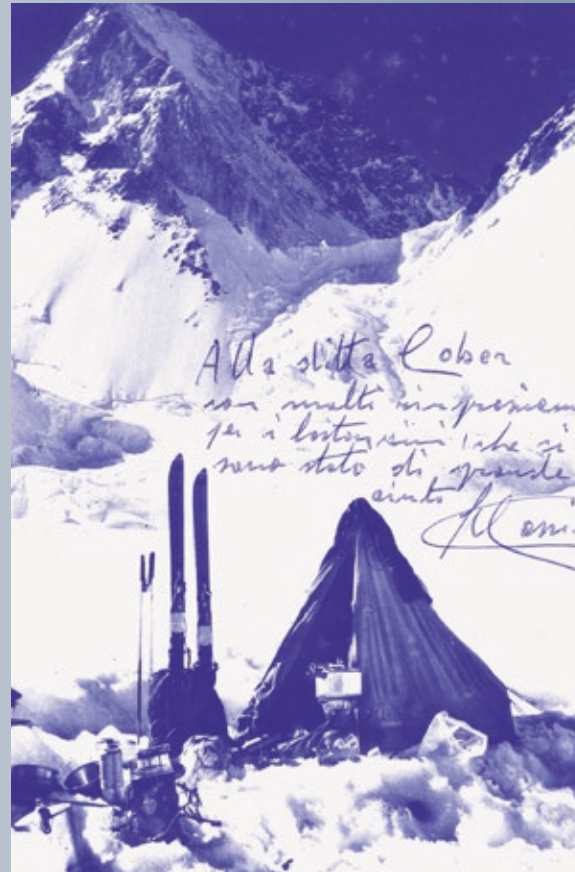 Alla ditta Cober
con molti ringraziam
per i bastoncini che ci
sono stati di grande
aiuto